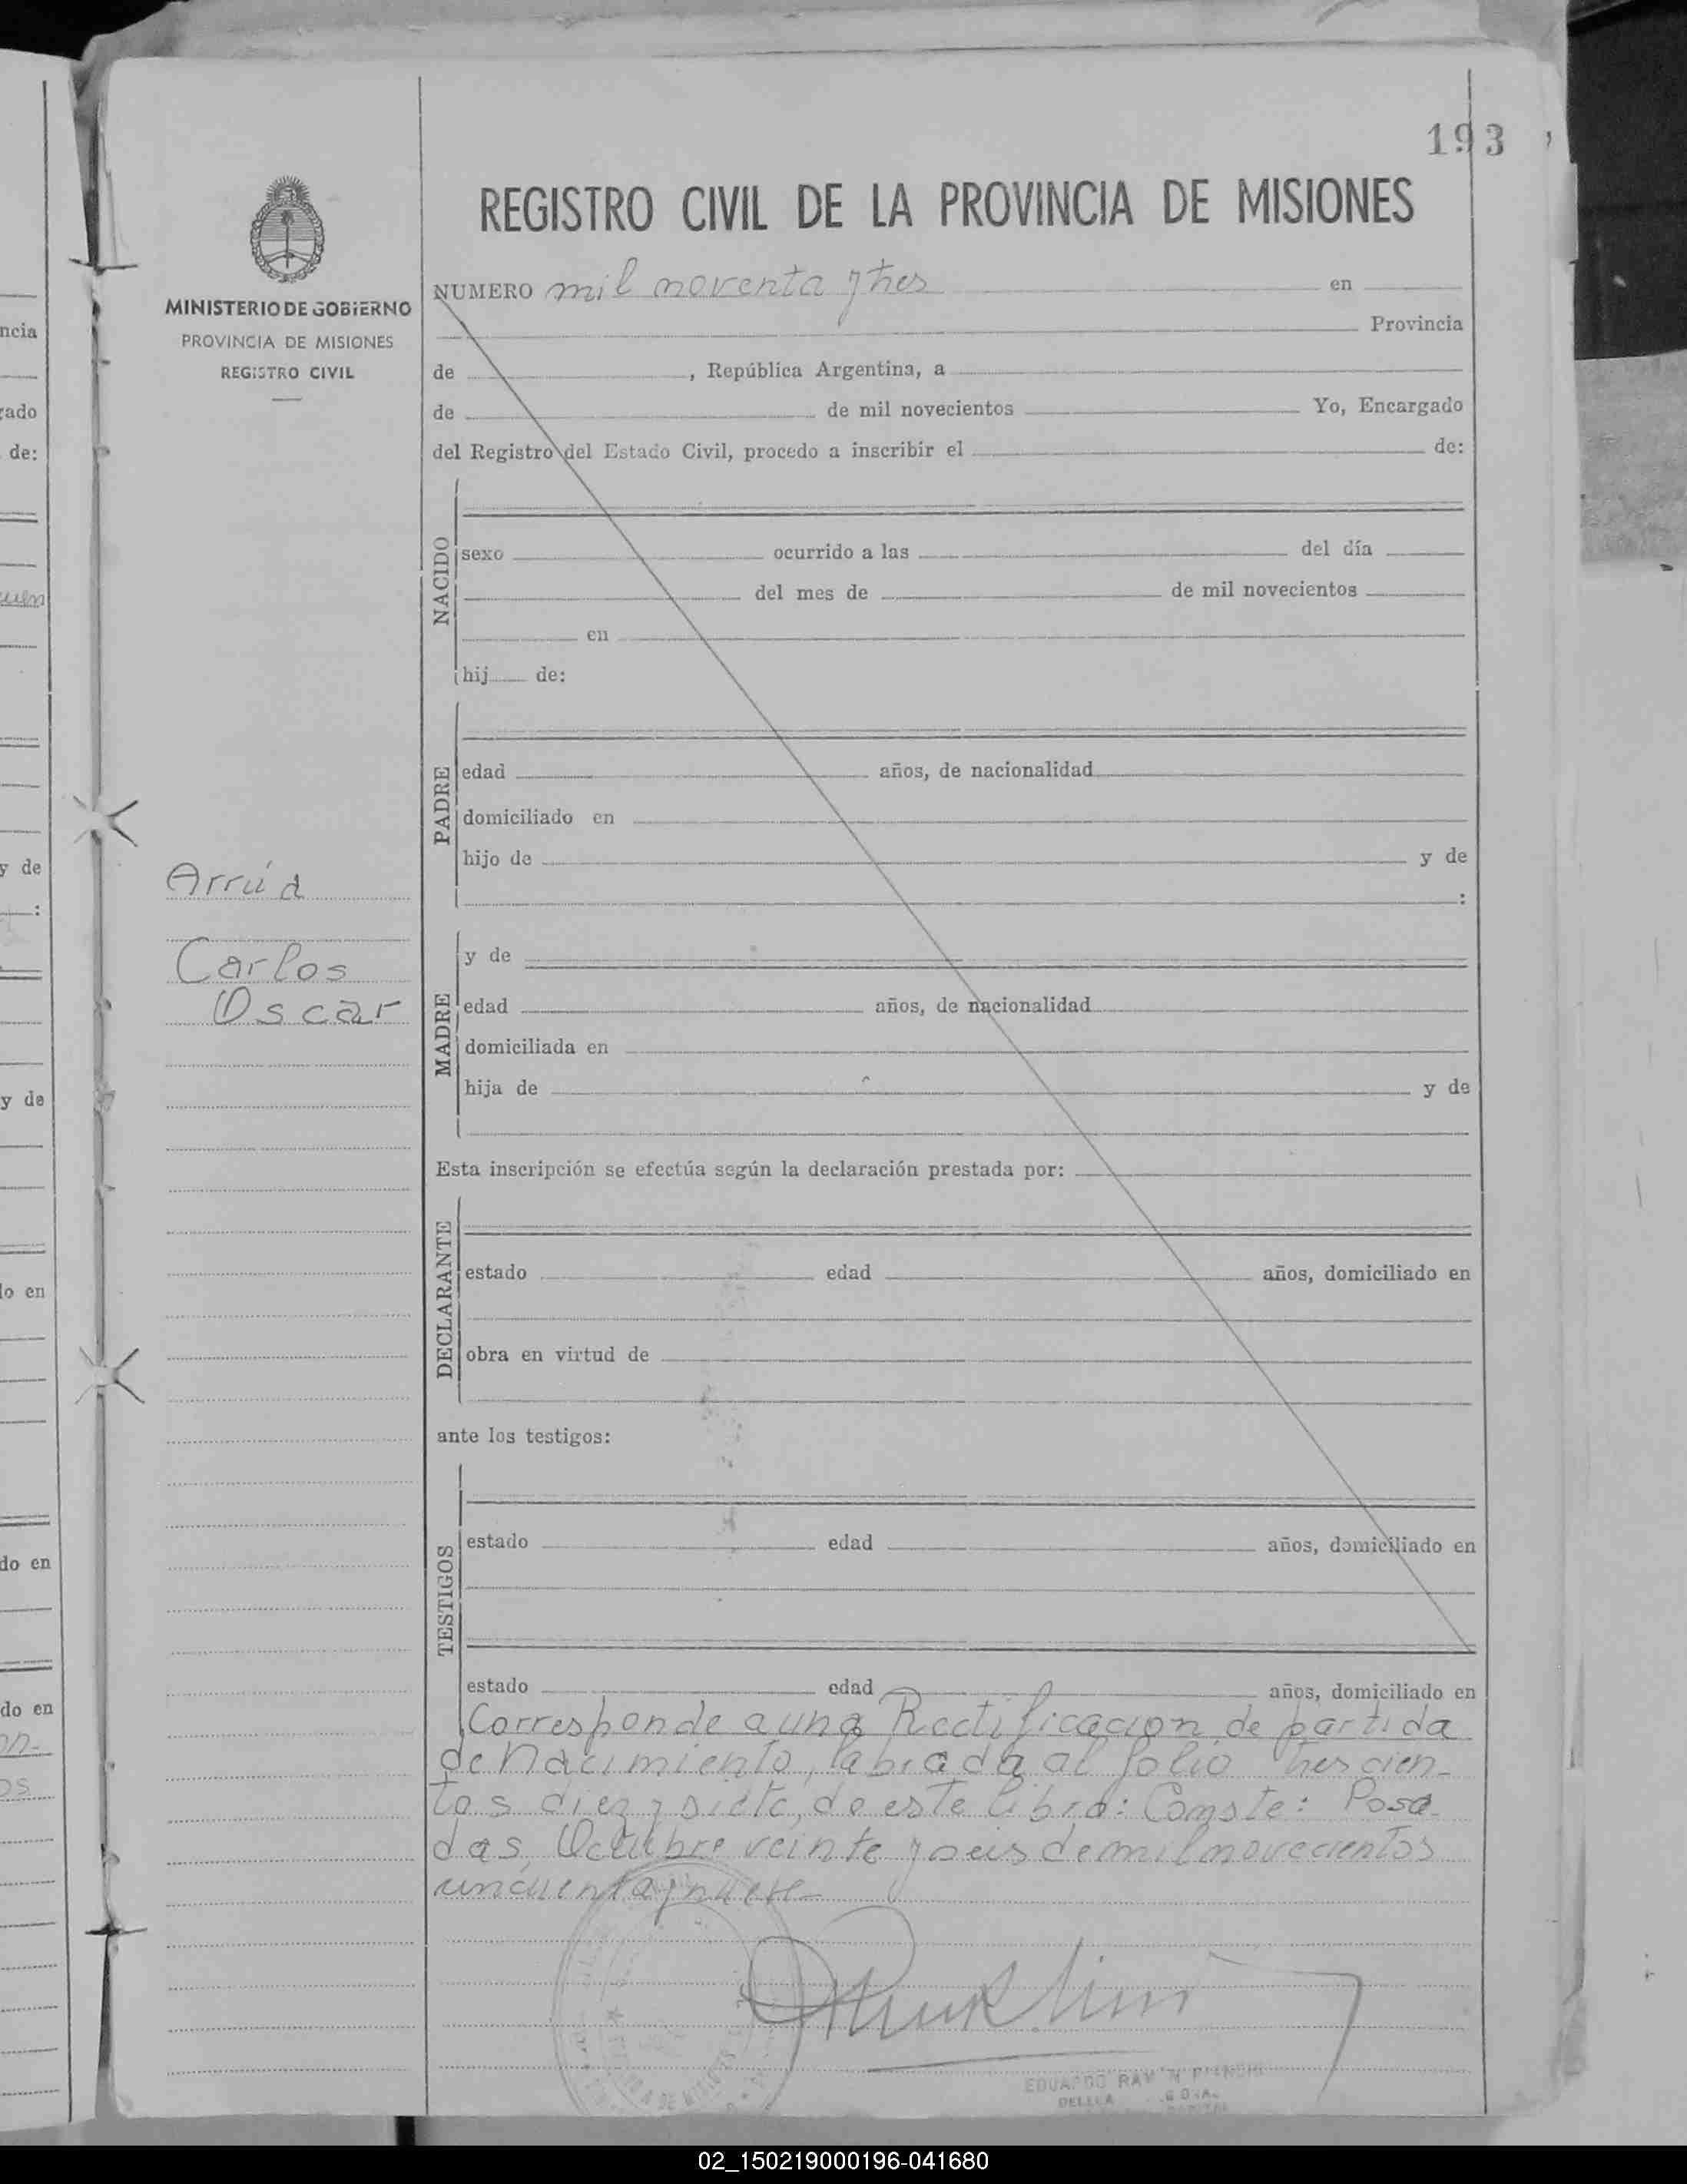 193
REGISTRO CIVIL DE LA PROVINCIA DE MISIONES
MINISTERIO DE GOBIERNO
PROVINCIA DE MISIONES
REGISTRO CIVIL
NUMERO mil noventa y tres en
Provincia
de , República Argentina, a
de de mil novecientos Yo, Encargado
del Registro del Estado Civil, procedo a inscribir el de:
NACIDO
sexo ocurrido a las del día
del mes de de mil novecientos
en
hij de:
PADRE
edad años, de nacionalidad
domiciliado en
hijo de y de
:
Arrúa
Carlos
Oscar
MADRE
y de
edad años, de nacionalidad
domiciliada en
hija de y de
Esta inscripción se efectúa según la declaración prestada por:
DECLARANTE
estado edad años, domiciliado en
obra en virtud de
ante los testigos:
TESTIGOS
estado edad años, domiciliado en
estado edad años, domiciliado en
Corresponde a una Rectificacion de partida
de Nacimiento, labrada al folio trescien-
tos diez y siete, de este libro: Conste: Posa-
das, Octubre veinte y seis de mil novecientos
cincuenta y nueve
EDUARDO RAMON
ncia
gado
de:
y de
:
y de
do en
do en
do en
02_150219000196-041680